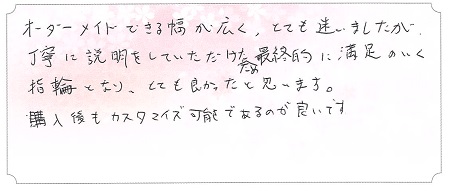 オーダーメイドできる幅が広く、とても迷いましたが、
丁寧に説明をしていただけたため最終的に満足のいく
指輪となり、とても良かったと思います。
購入後もカスタマイズ可能であるのが良いです